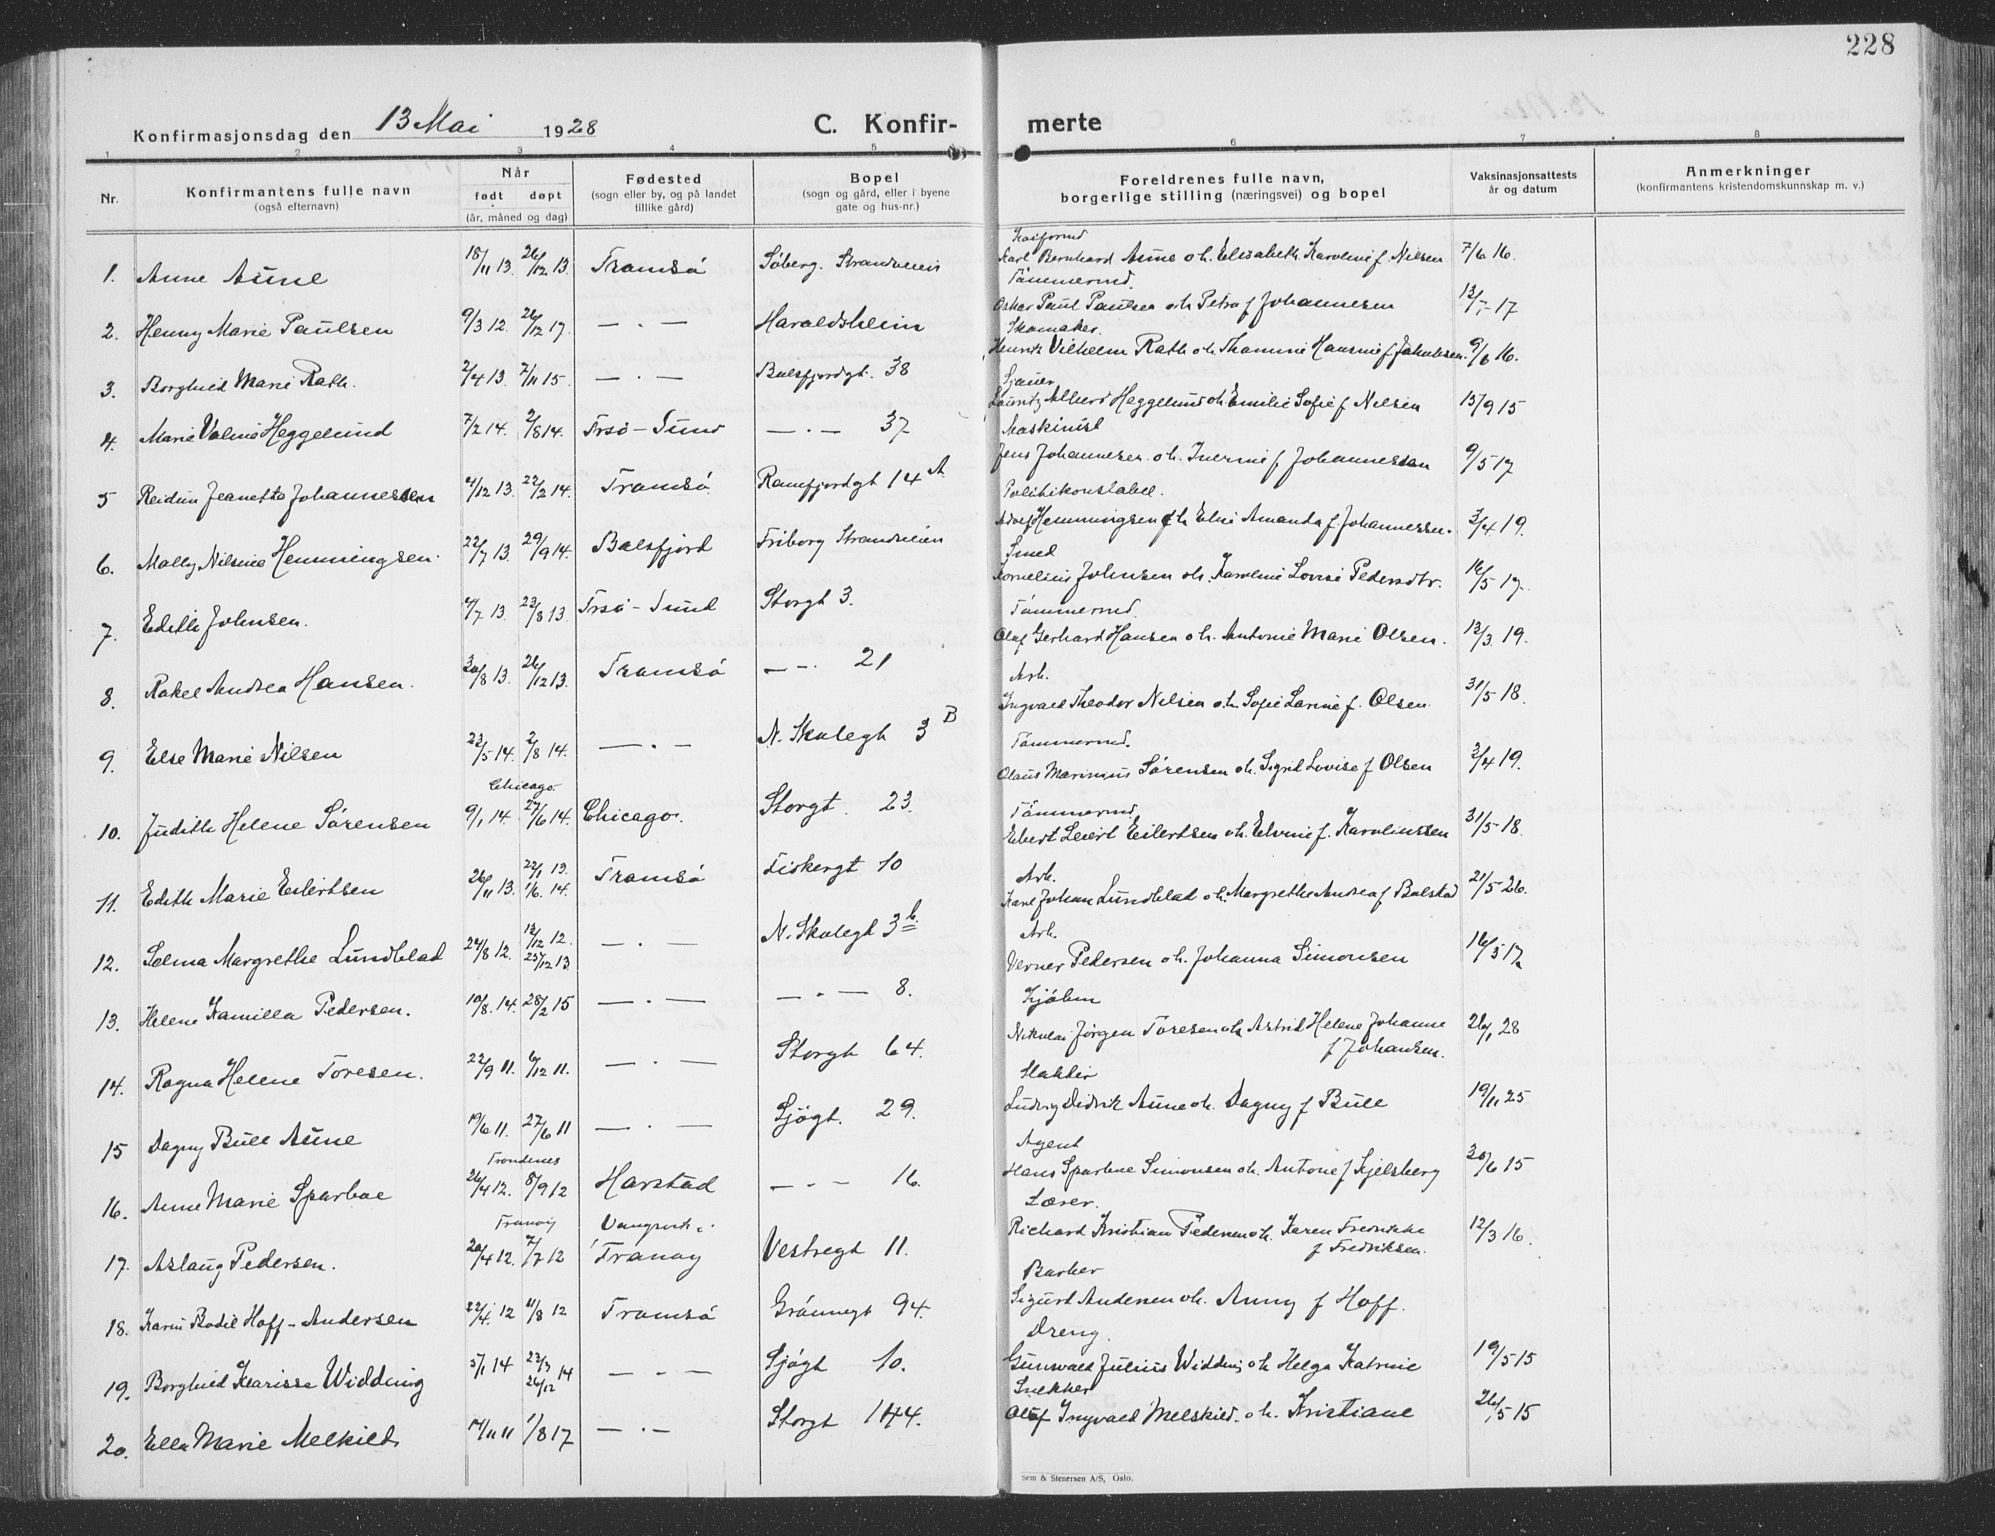 228
Konfirmasjonsdag den 13 Mai 1928
C. Konfir- merte
1 2 3 4 5 6 7 8
Nr.
Konfirmantens fulle navn
(også efternavn)
Når
født døpt
(år, måned og dag)
Fødested
(sogn eller by, og på landet
tillike gård)
Bopel
(sogn og gård, eller i byene
gate og hus-nr.)
Foreldrenes fulle navn,
borgerlige stilling (næringsvei) og bopel
Vaksinasjonsattests
år og datum
Anmerkninger
(konfirmantens kristendomskunnskap m. v.)
1. Anne Aune 18/11 13. 26/12 13. Tromsö Söberg. Strandveien
Karl Bernhard Aune o h. Elisabeth Karoline f. Nilsen 7/6 16.
Tömmermd.
2. Henny Marie Paulsen 9/3 12. 26/12 17. — . — Haraldsheim
Oskar Paul Paulsen o h Petra f Johannesen 13/- 17
Skomaker.
3. Borghild Marie Rath. 2/4 13. 7/11 15. — . — Balsfjordgt. 38
Henrik Vilhelm Rath o h. Thamine Hansine f. Jakobsen. 9/6 16.
Sjauer
4. Marie Valine Heggelund 7/2 14. 2/8 14. Trsö - Sund — . — 37
Lauritz Albert Heggelund o h Emilie Sofie f Nilsen 15/9 15
Maskinist
5 Reidun Jeanette Johannessen 4/12 13. 22/2 14. Tromsö Ramfjordgt 14 A.
Jens Johannesen o. h. Inermie f Johannessen 9/5 17
Politikonstabel.
6. Molly Nilsine Henningsen. 22/7 13. 29/9 14. Balsfjord Friborg Strandveien
Adolf Hemmingsen o h Elni Amanda f. Johannessen. 3/4 19.
Smed
7. Edith Johnsen. 4/7 13. 23/8 13. Trsö - Sund Storgt 3.
Kornelius Johnsen o h. Karoline Lovise Pedersdtr. 16/5 17.
Tömmermd
8. Rakel Andrea Hansen. 30/8 13. 26/12 13. Tromsö — — . 21
Olaf Gerhard Hansen o h. Antonie Marie Olsen. 13/3. 19.
Arb.
9. Else Marie Nilsen 23/5 14. 2/8 14. — . — N. Skolegt 3 B
Ingvald Theodor Nilsen o. h. Sofie Larine f. Olsen. 31/5 18.
Tömmermd.
Chicago.
10. Judith Helene Sörensen 9/1 14. 27/6 14. Chicago. Storgt. 23.
Olaus Marinius Sörensen o h. Sigrid Lovise f Olsen 3/4 19.
Tömmermd.
11. Edith Marie Eilertsen 26/11 13. 22/1 13. 1/6. 14. Tromsö Fiskergt 10
Ebert Leiert Eilertsen o h. Elvine f. Karolinssen 31/5 18.
Arb.
12. Selma Margrethe Lundblad 24/8 12. 13/12 12. 25/12 13. — . — N. Skolegt 3 b.
Karl Johan Lundblad o h. Margrethe Andrea f Balstad 21/5 26.
Arb.
13. Helene Kamilla Pedersen. 10/8. 14. 28/2 15 — . — — . — 8.
Verner Pedersen o h. Johanna Simonsen 16/5 17
Kjöbm
14. Ragna Helene Toresen. 22/9 11. 6/12 11. — . — Storgt 64.
Nikolai Jørgen Toresen o h Astrid Helene Johanne
f Johansen. 26/1 28
Slakter
15 Dagny Bull Aune 19/6 11. 27/6 11 — . — Sjøgt. 29.
Ludvig Didrik Aune o h. Dagny f Bull 19/11 25
Agent
Trondenes
16. Anne Marie Sparboe 26/4 12. 8/9 12 Harstad — — . 16.
Hans Sparboe Simonsen o h. Antone f Kjelsberg 30/6 15
Lærer.
Tranøy
17. Aslaug Pedersen. 20/4 12. 7/7 12 Tranøy Vestregt 11.
Richard Kristian Pedersen o h. Karen Fredrikke
f Fredriksen. 12/3 16.
Barber
18. Karin Bodil Hoff - Andersen 22/4. 12 11/8 12 Tromsö Grönnegt 94.
Sigurd Andersen o h. Anny f Hoff.
Dreng.
19. Borghild Klarisse Widding 5/1 14 23/3 14 26/12 — . — Sjøgt 10.
Gunvald Julius Widding o h Helga Katrine 19/5 15
Snekker
20. Ella Marie Melkild 14/11 11 1/8 17 — . — Storgt 144.
Olaf Ingvald Melskild. o h. Kristiane 26/5 15
Sem & Stenersen A/S, Oslo.